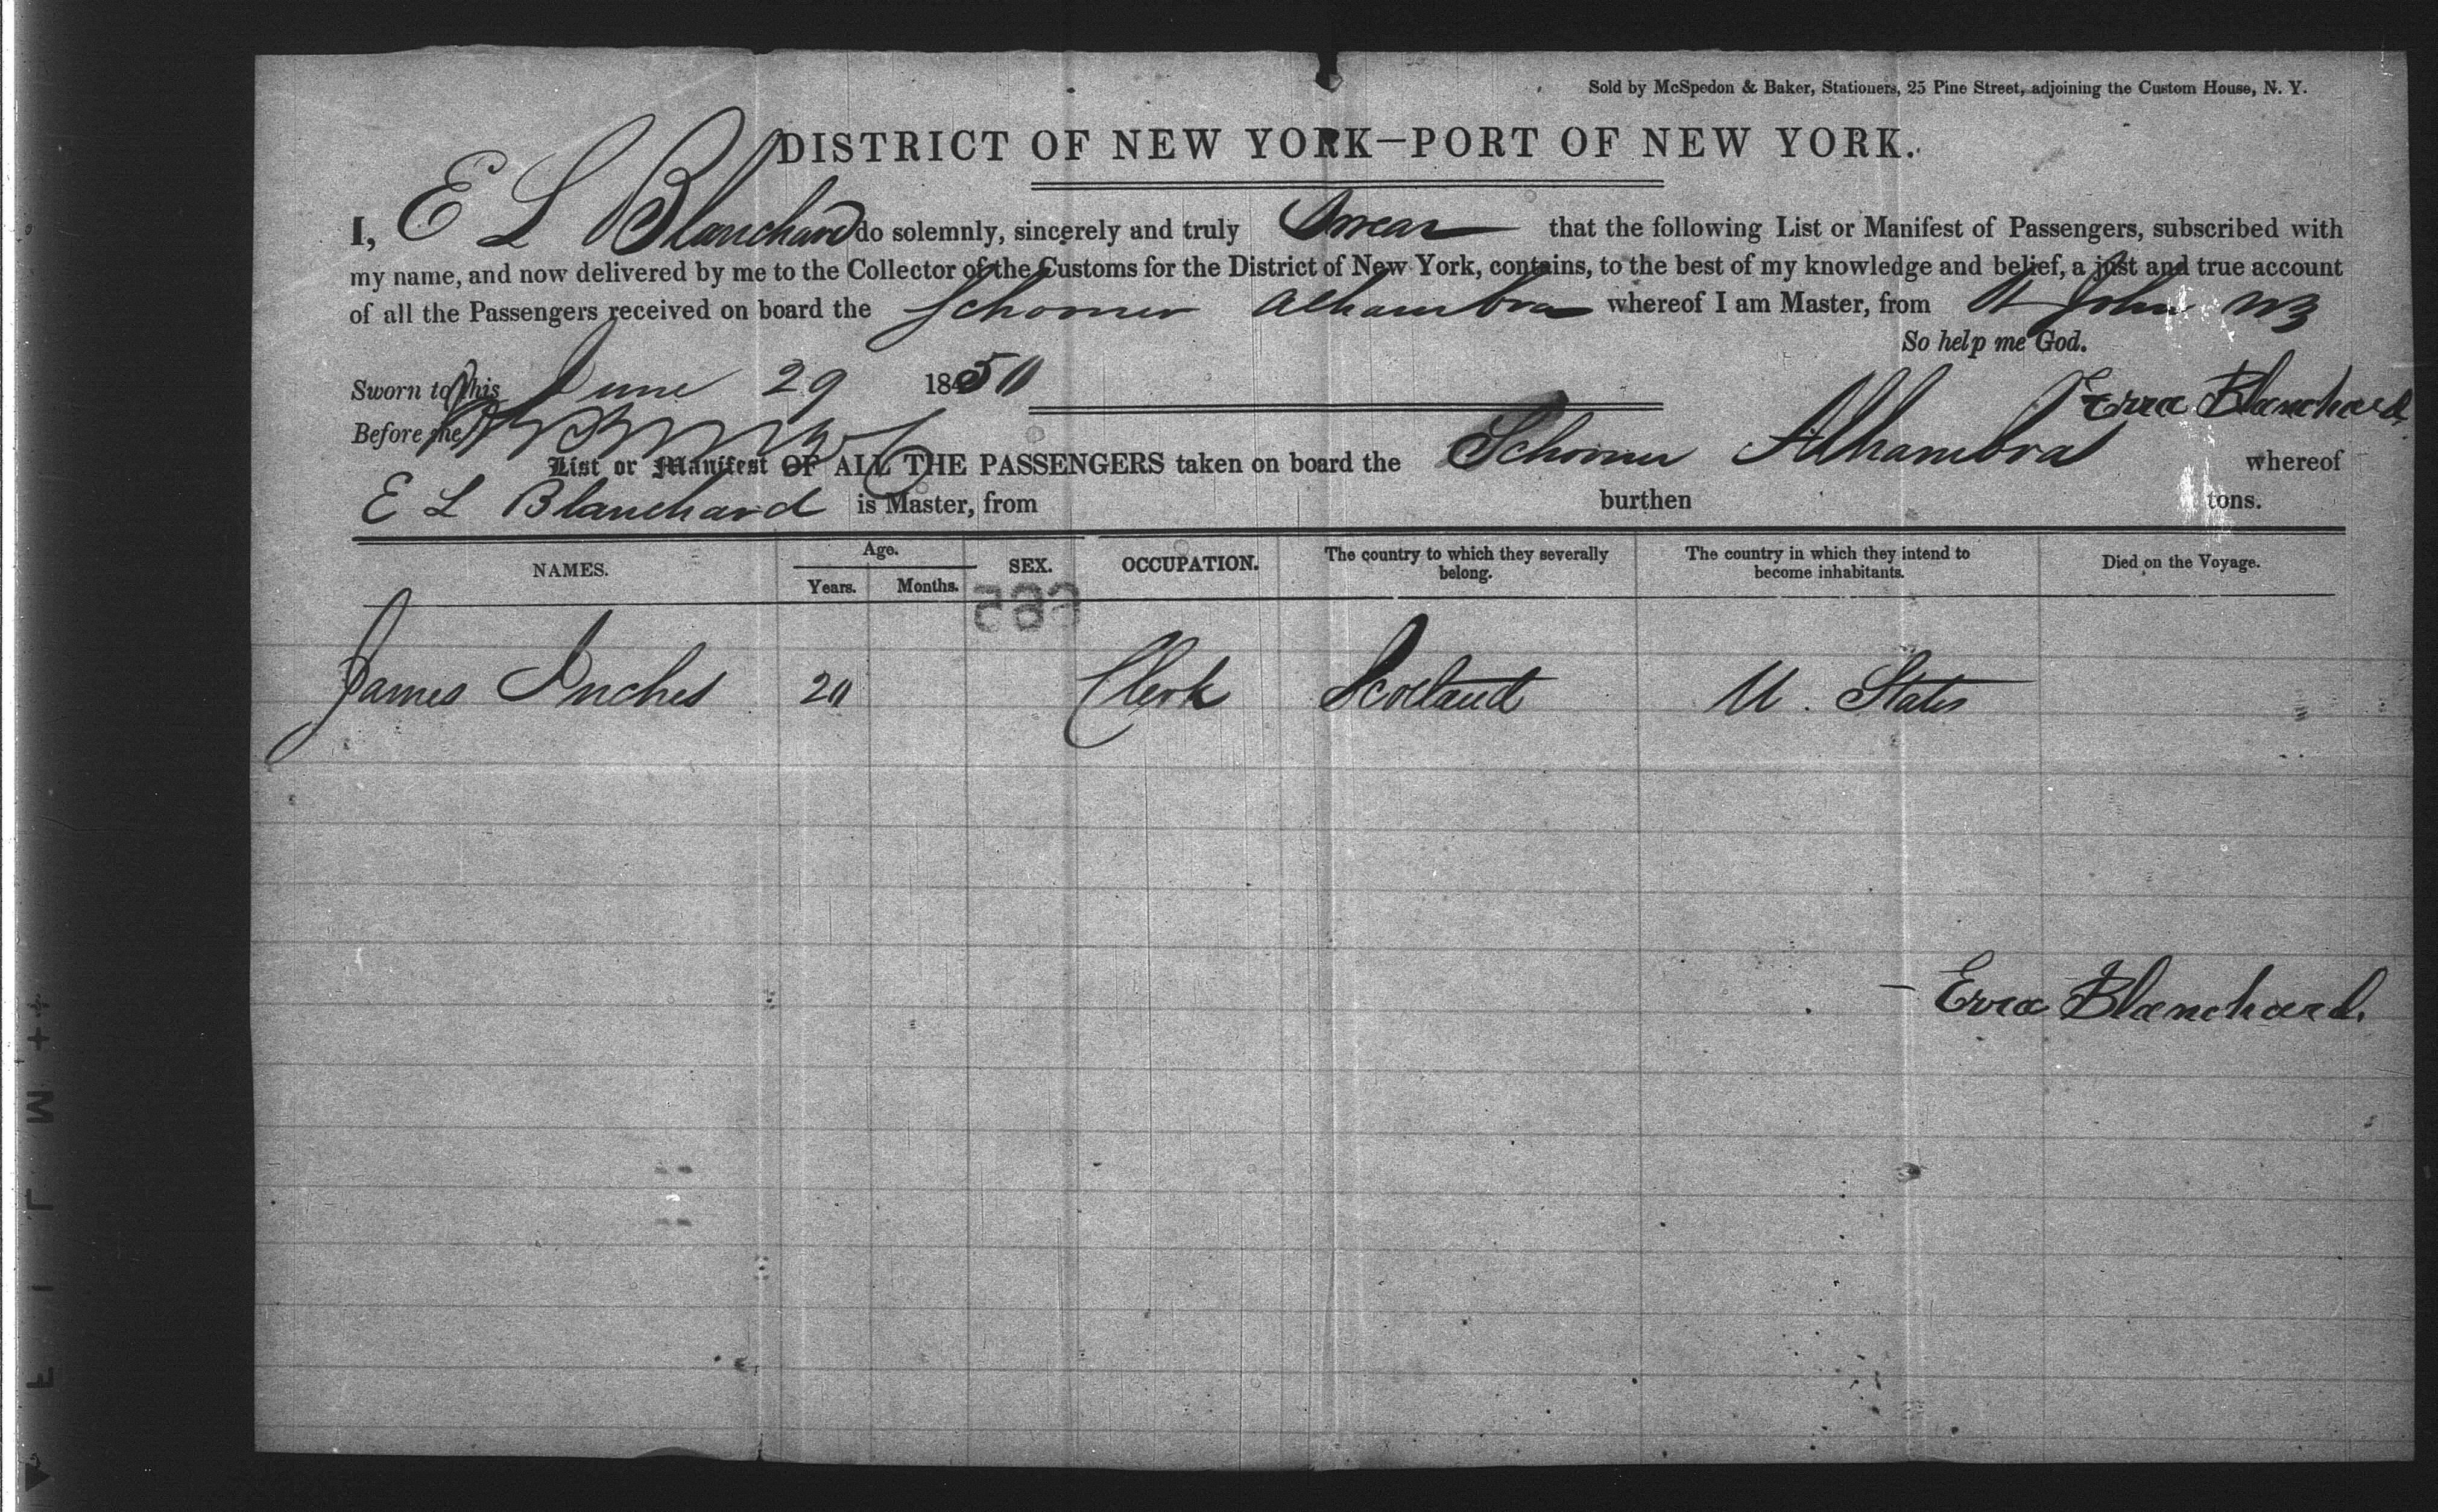 Sold by McSpedon & Baker, Stationers, 25 Pine Street, adjoining the Custom House, N. Y.
DISTRICT OF NEW YORK—PORT OF NEW YORK.
I, E L Blanchard do solemnly, sincerely and truly Swear that the following List or Manifest of Passengers, subscribed with
my name, and now delivered by me to the Collector of the Customs for the District of New York, contains, to the best of my knowledge and belief, a just and true account
of all the Passengers received on board the Schooner Alhambra whereof I am Master, from St John NB
So help me God.
Sworn to this June 29 1850
Ezra Blanchard
Before me
List or Manifest OF ALL THE PASSENGERS taken on board the Schooner Alhambra whereof
E L Blanchard is Master, from burthen tons.
NAMES. Age. Years. Months. SEX. OCCUPATION. The country to which they severally belong. The country in which they intend to become inhabitants. Died on the Voyage.
James Inches 20 Clerk Scotland U. States
Ezra Blanchard.